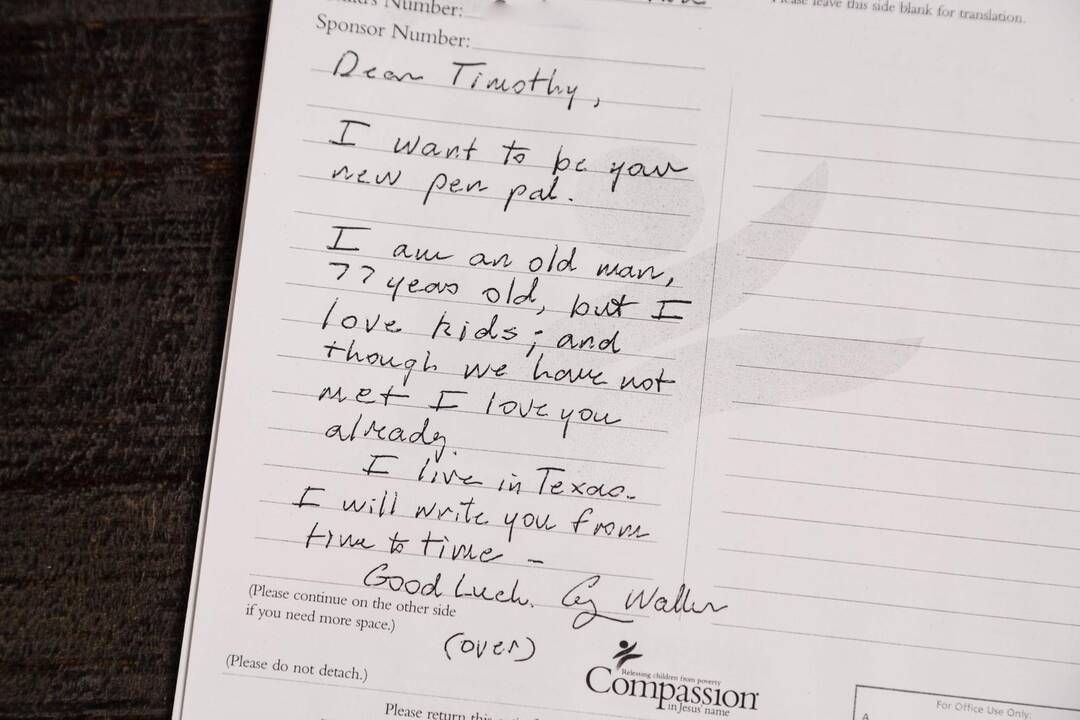 Number:
Please leave this side blank for translation.
Sponsor Number:
Dear Timothy,
I want to be your
new pen pal.
I am an old man,
77 years old, but I
love kids; and
though we have not
met I love you
already.
I live in Texas.
I will write you from
time to time –
Good Luck. Walker
(Please continue on the other side
if you need more space.)
(over)
(Please do not detach.)
Releasing children from poverty
Compassion
in Jesus' name
Please return this
For Office Use Only:
A